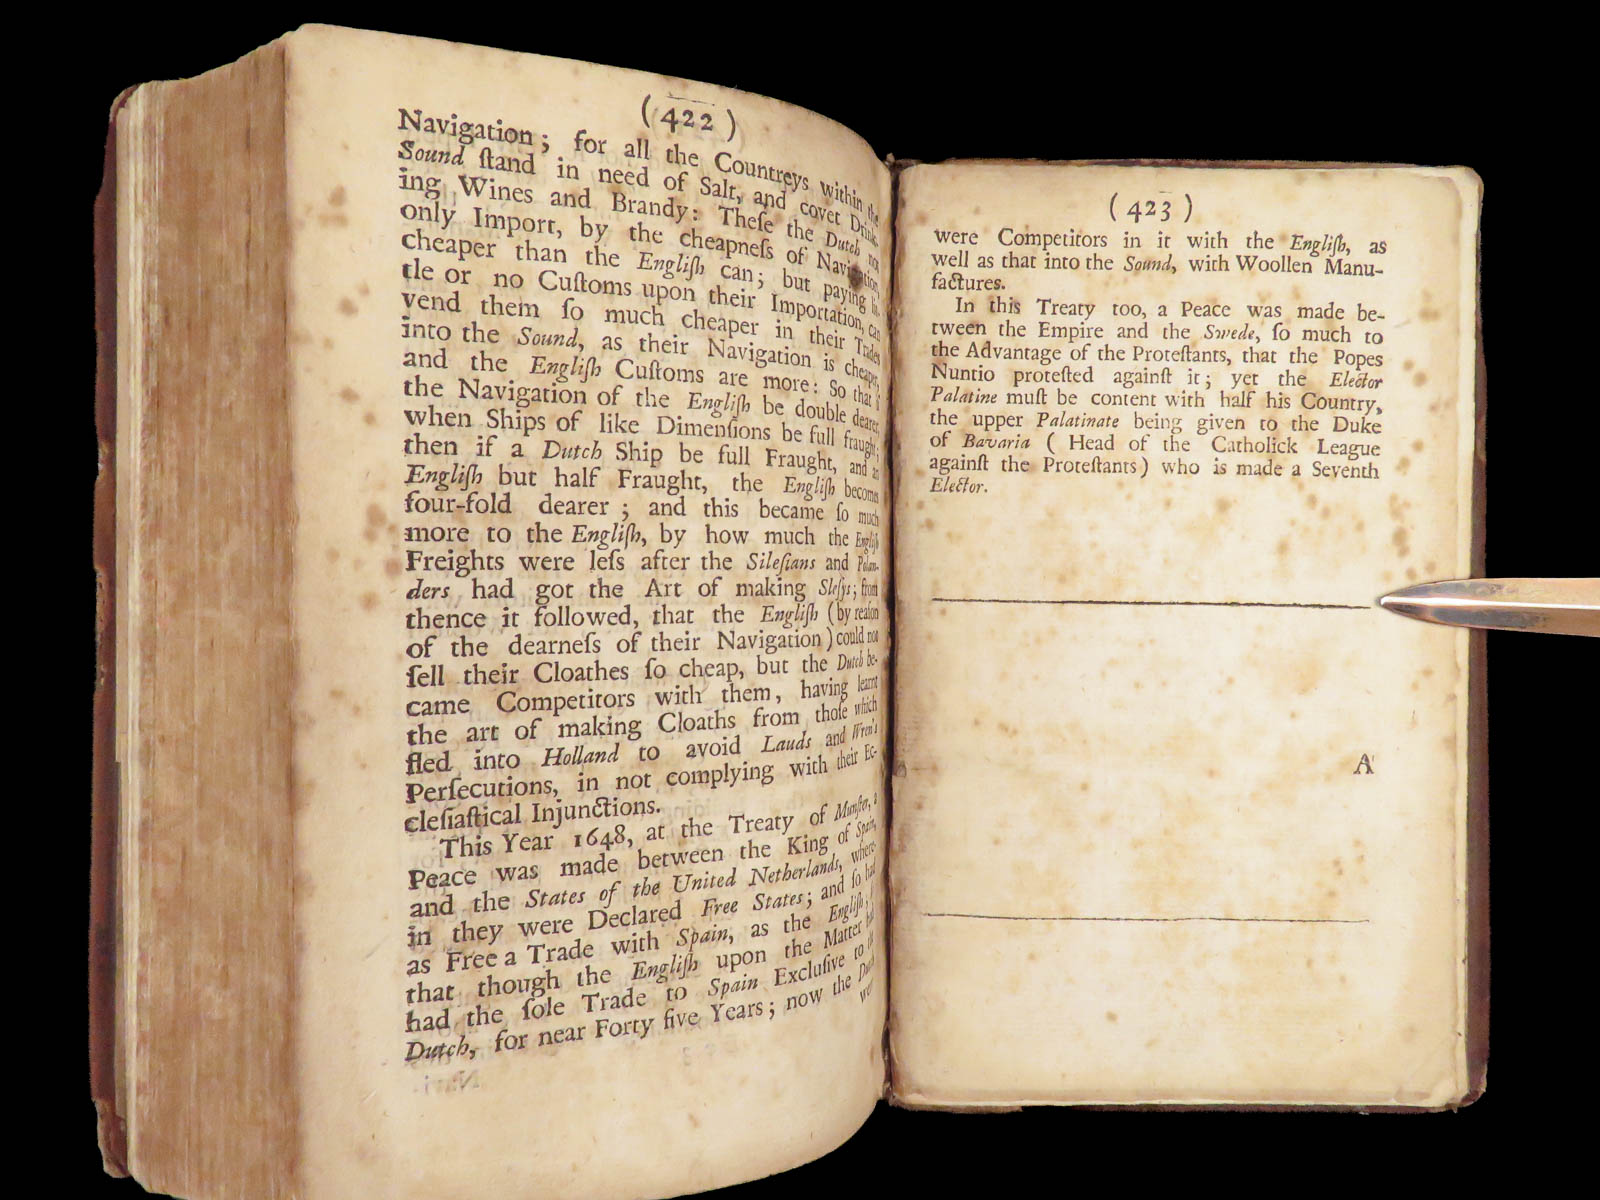 ( 422 )
Navigation; for all the Countreys within the
Sound ſtand in need of Salt, and covet Drink-
ing Wines and Brandy: Theſe the Dutch not
only Import, by the cheapneſs of Navigation,
cheaper than the Engliſh can; but paying lit-
tle or no Cuſtoms upon their Importation, can
vend them ſo much cheaper in their Trades
into the Sound, as their Navigation is cheaper,
and the Engliſh Cuſtoms are more: So that if
the Navigation of the Engliſh be double dearer,
when Ships of like Dimenſions be full fraught;
then if a Dutch Ship be full Fraught, and an
Engliſh but half Fraught, the Engliſh becomes
four-fold dearer; and this became ſo much
more to the Engliſh, by how much the Engliſh
Freights were leſs after the Sileſians and Polan-
ders had got the Art of making Sleſys; from
thence it followed, that the Engliſh (by reaſon
of the dearneſs of their Navigation) could not
ſell their Cloathes ſo cheap, but the Dutch be-
came Competitors with them, having learnt
the art of making Cloaths from thoſe which
fled into Holland to avoid Lauds and Wren's
Perſecutions, in not complying with their Ec-
cleſiaſtical Injunctions.
This Year 1648, at the Treaty of Munſter, a
Peace was made between the King of Spain,
and the States of the United Netherlands, where-
in they were Declared Free States; and ſo had
as Free a Trade with Spain, as the Engliſh;
that though the Engliſh upon the Matter had
had the ſole Trade to Spain Excluſive to the
Dutch, for near Forty five Years; now the Dutch
were
( 423 )
were Competitors in it with the Engliſh, as
well as that into the Sound, with Woollen Manu-
factures.
In this Treaty too, a Peace was made be-
tween the Empire and the Swede, ſo much to
the Advantage of the Proteſtants, that the Popes
Nuntio proteſted againſt it; yet the Elector
Palatine muſt be content with half his Country,
the upper Palatinate being given to the Duke
of Bavaria ( Head of the Catholick League
againſt the Proteſtants) who is made a Seventh
Elector.
A